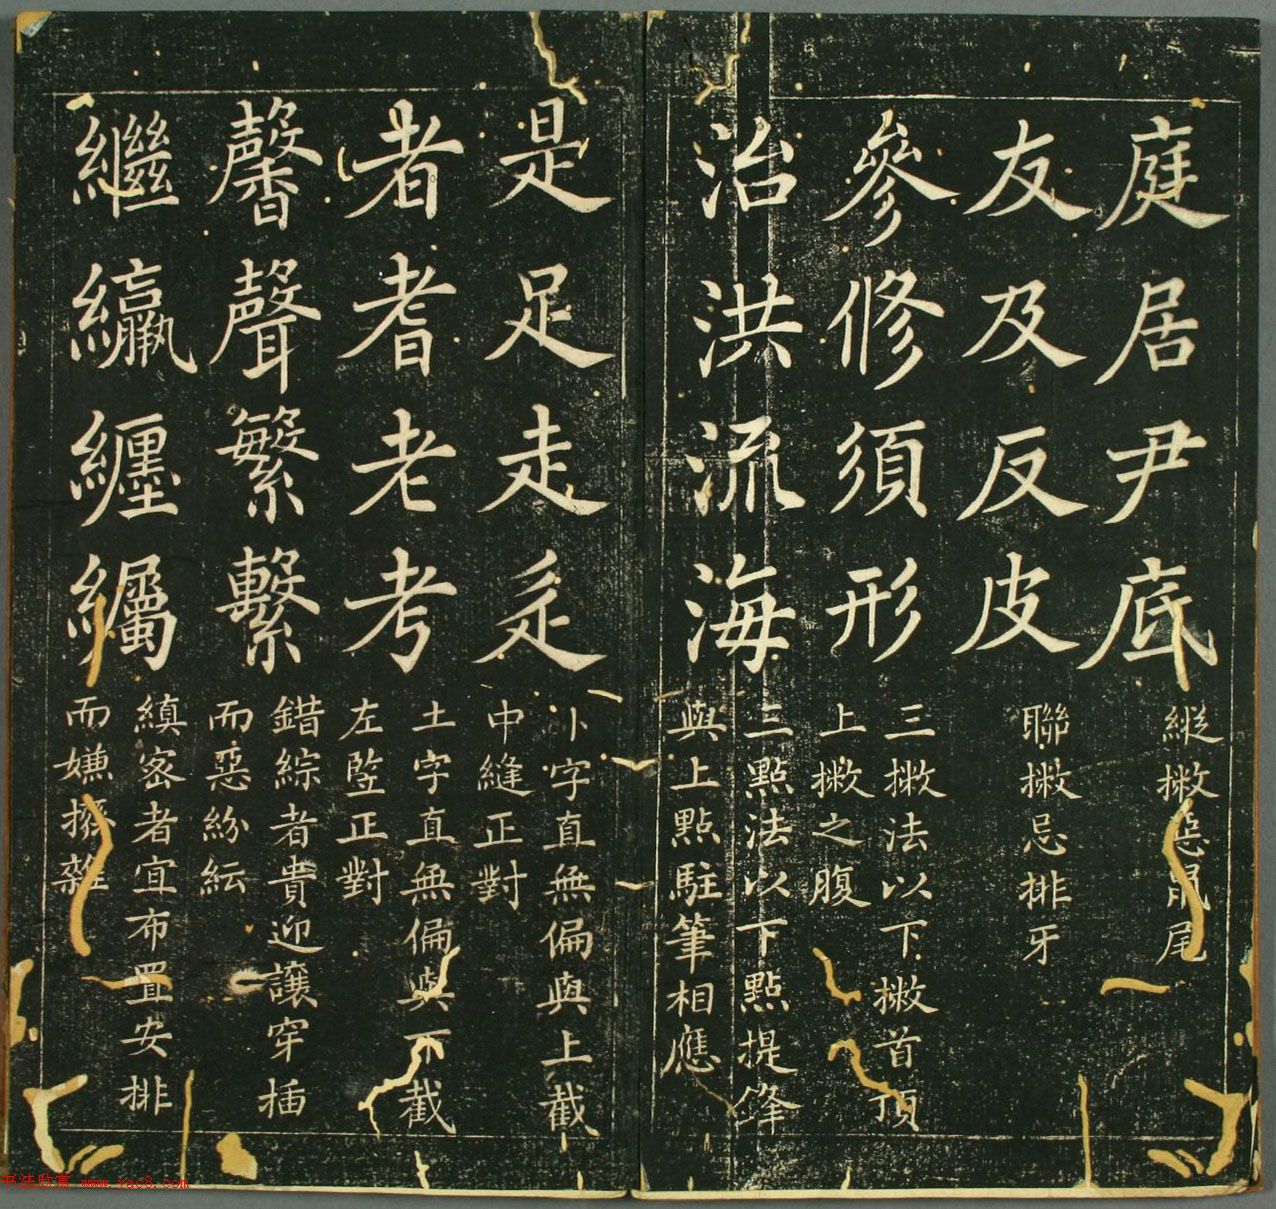 庭居尹底
縱撇惡鼠尾
友及反皮
聯撇忌排牙
參修須形
三撇法以下撇首頂
上撇之腹
治洪流海
三點法以下點提鋒
與上點駐筆相應
是足走辵
卜字直無偏與上截
中縫正對
者耆老考
土字直無偏與下截
左竪正對
馨聲繁繫
錯綜者貴迎讓穿插
而惡紛紜
繼纏
縝密者宜布置安排
而嫌擁雜
书法欣赏 www.yac8.com